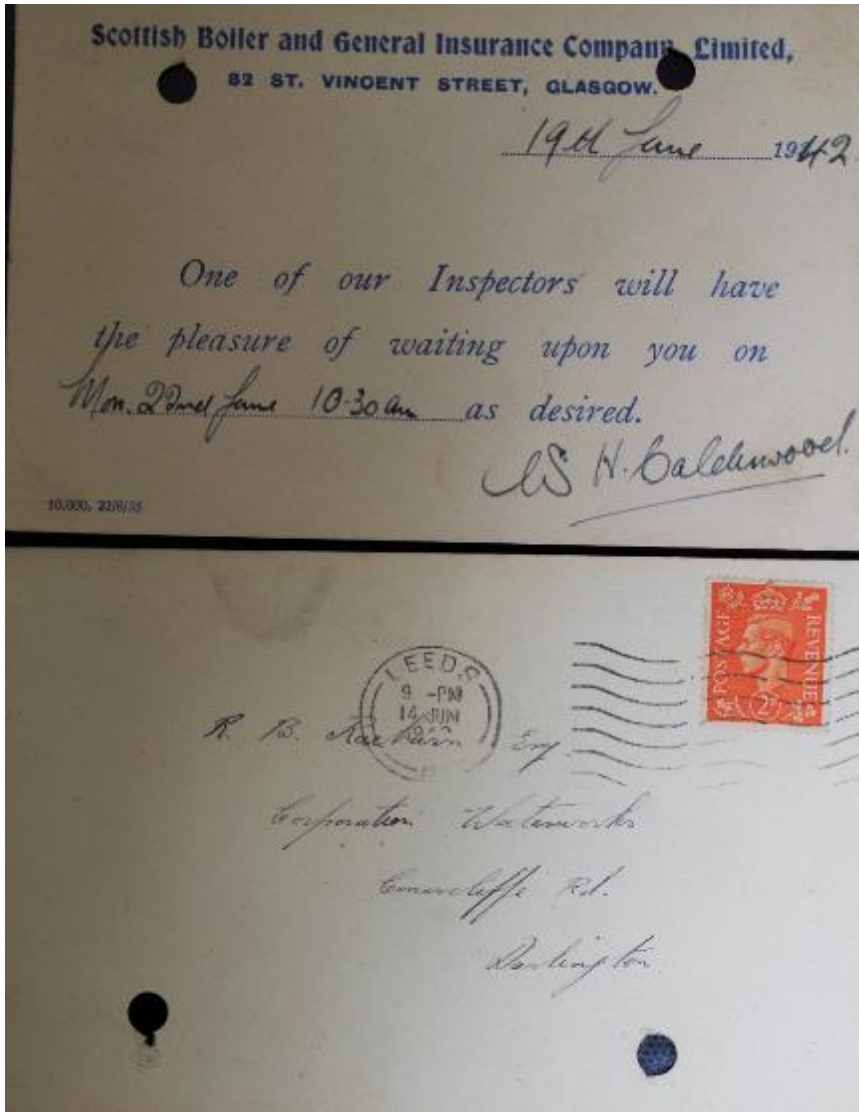 Scottish Boiler and General Insurance Company, Limited,
82 ST. VINCENT STREET, GLASGOW.
19th June 1942.
One of our Inspectors will have
the pleasure of waiting upon you on
Mon. 22nd June 10.30 am as desired.
H. Calderwood.
10,000, 22/8/35
POSTAGE REVENUE
2D
LEEDS
9 - PM
14 JUN
R. B. Raeburn Esq.
Corporation Waterworks
Coniscliffe Rd.
Darlington